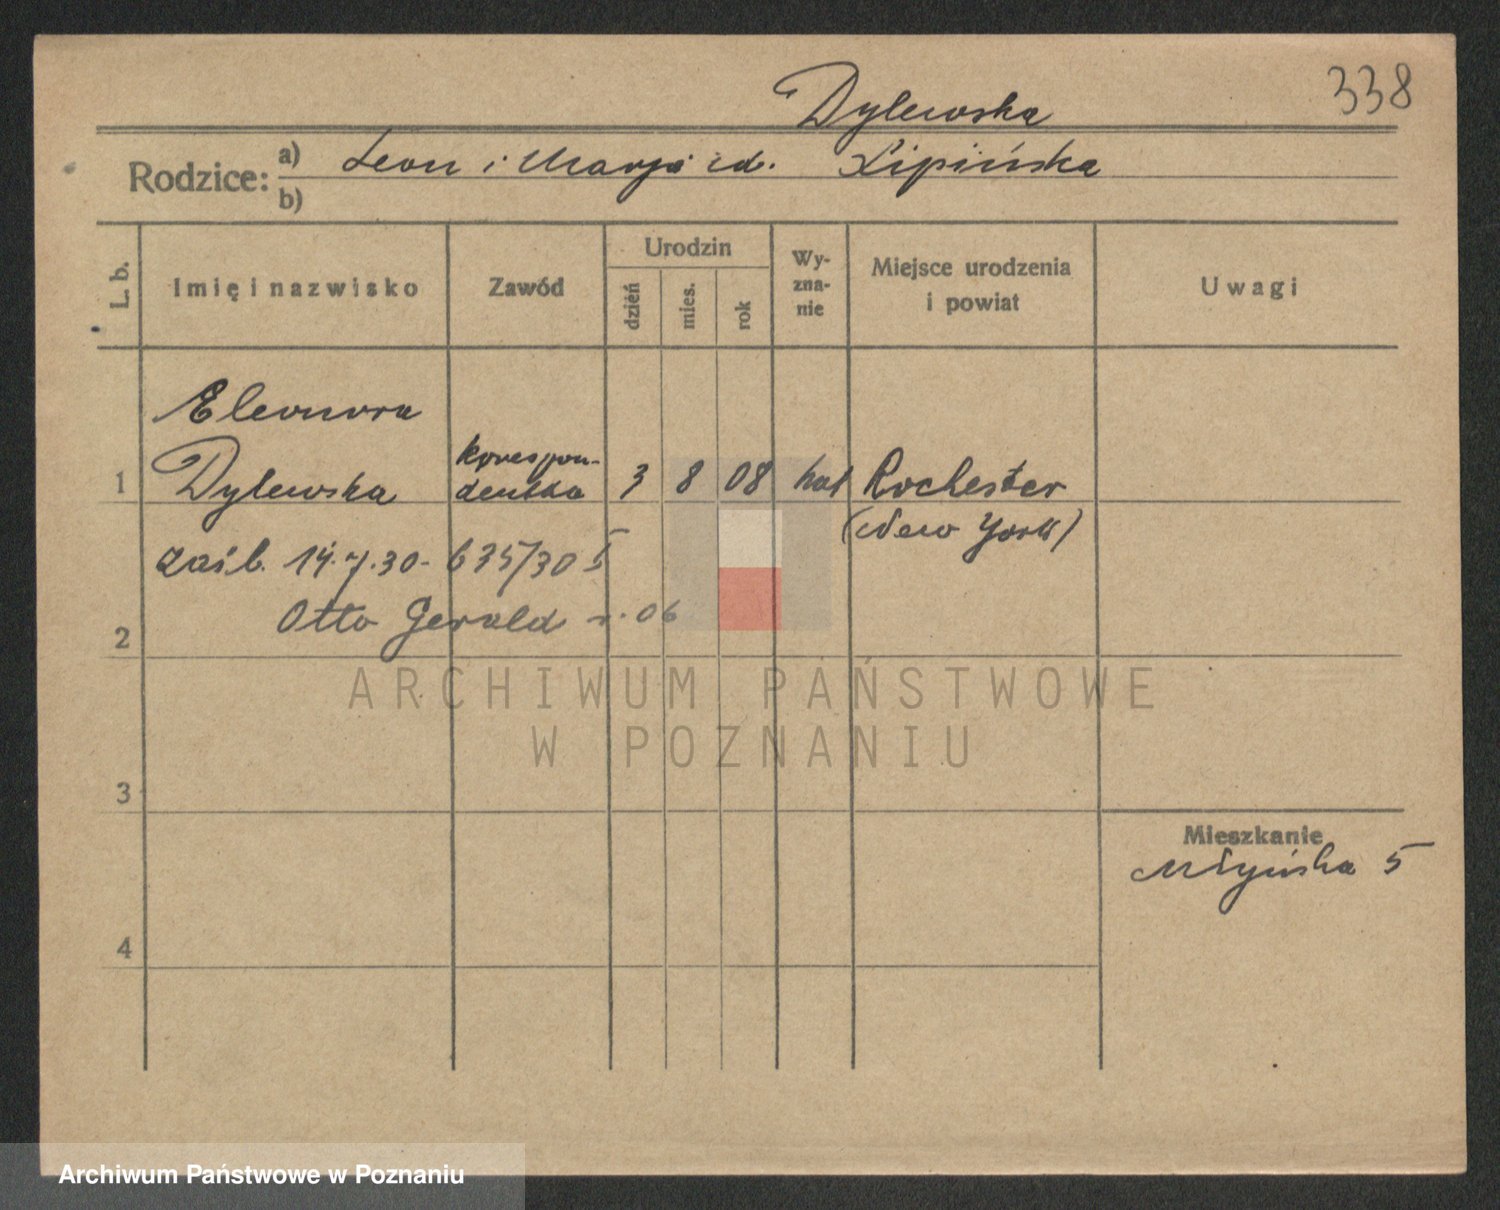 338
Dylewska
Rodzice: a) Leon i Marja zd. Lipińska
b)
L. b. Imię i nazwisko Zawód Urodzin dzień mies. rok Wy-zna-nie Miejsce urodzenia i powiat Uwagi
Eleonora
1 Dylewska korespon-dentka 3 8 08 kat Rochester
(New York)
zaśl. 14.7.30. 635/30
Otto Gerald r. 06
2
ARCHIWUM PAŃSTWOWE
W POZNANIU
3
Mieszkanie
Młyńska 5
4
Archiwum Państwowe w Poznaniu